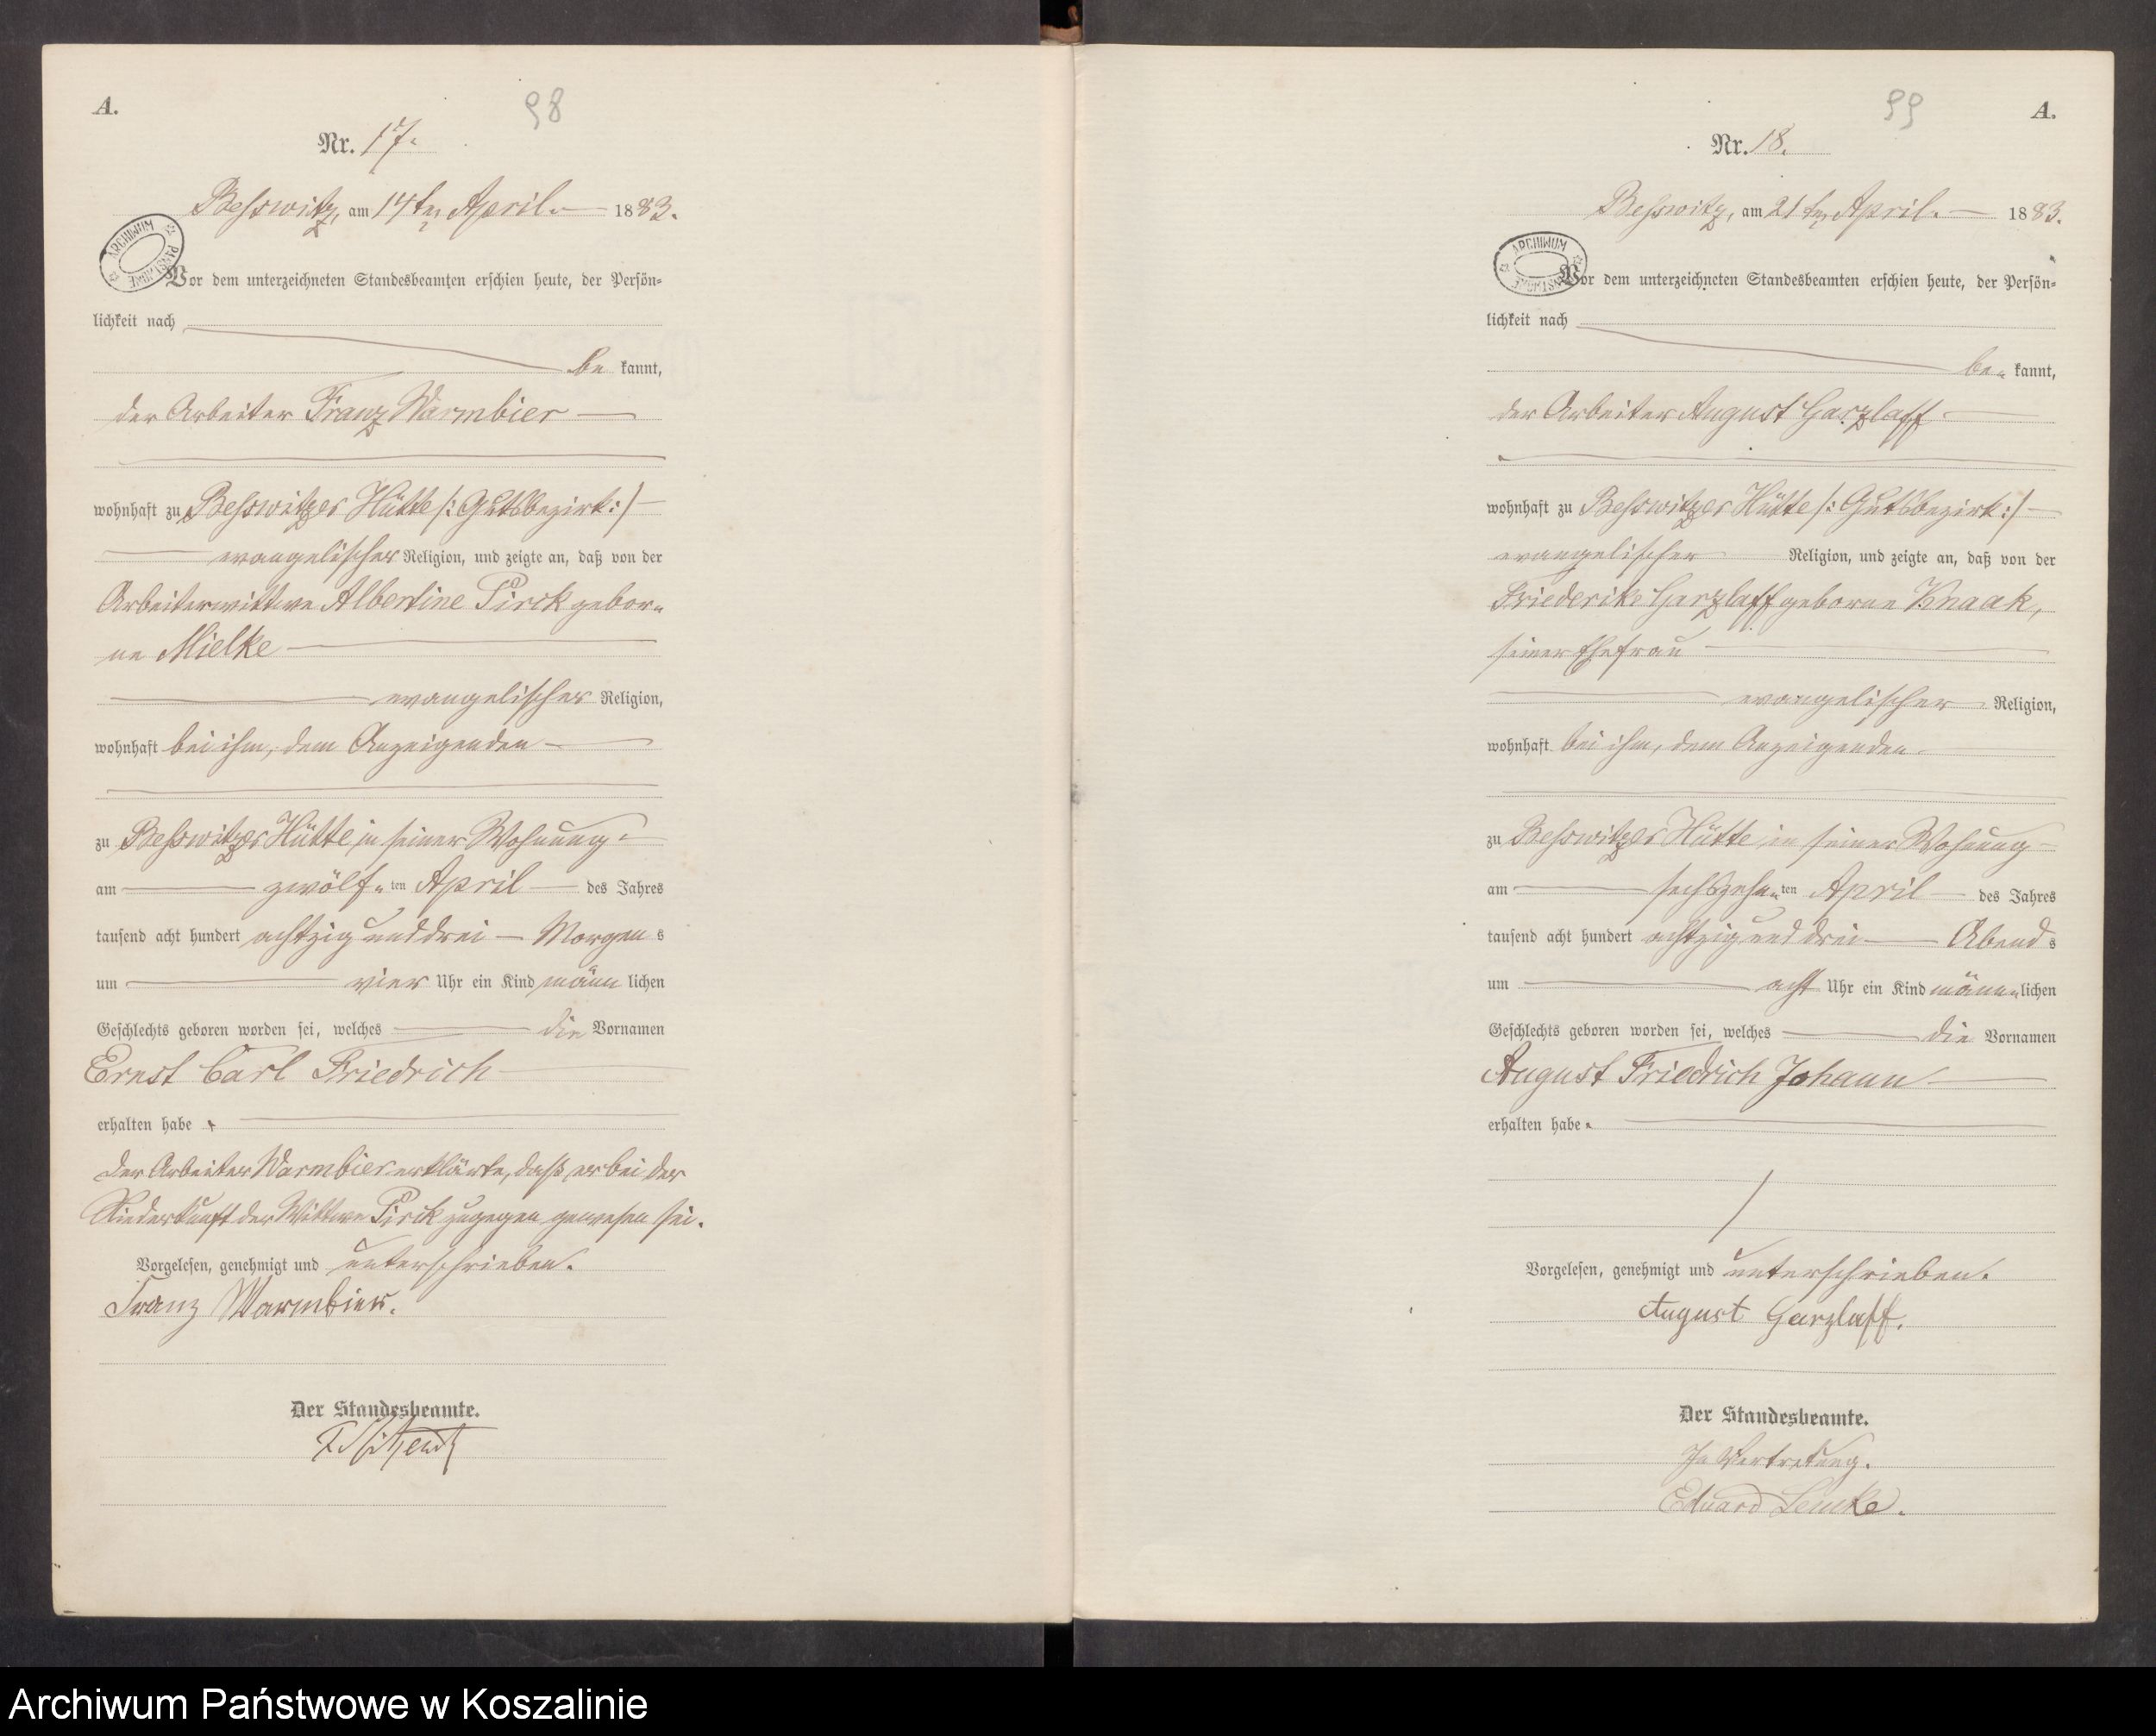 A.
98
Nr. 17.
Besswitz, am 14ten April. 1883.
ARCHIWUM PAŃSTWOWE
Vor dem unterzeichneten Standesbeamten erschien heute, der Persön=
lichkeit nach
be kannt,
der Arbeiter Franz Warmbier
wohnhaft zu Besswitzer Hütte /: Gutsbezirk :/
evangelischer Religion, und zeigte an, daß von der
Arbeiterwittwe Albertine Pirck gebor=
ne Mielke
evangelischer Religion,
wohnhaft bei ihm, dem Anzeigenden
zu Besswitzer Hütte in seiner Wohnung
am zwölf=ten April des Jahres
tausend acht hundert achtzig und drei Morgens
um vier Uhr ein Kind männlichen
Geschlechts geboren worden sei, welches die Vornamen
Ernst Carl Friedrich
erhalten habe.
Der Arbeiter Warmbier erklärte, daß er bei der
Niederkunft der Wittwe Pirck zugegen gewesen sei.
Vorgelesen, genehmigt und unterschrieben.
Franz Warmbier.
Der Standesbeamte.
99
A.
Nr. 18.
Besswitz, am 21ten April. 1883.
ARCHIWUM PAŃSTWOWE
Vor dem unterzeichneten Standesbeamten erschien heute, der Persön=
lichkeit nach
be= kannt,
der Arbeiter August Garzlaff
wohnhaft zu Besswitzer Hütte /: Gutsbezirk :/
evangelischer Religion, und zeigte an, daß von der
Friederike Garzlaff geborne Knaak,
seiner Ehefrau
evangelischer Religion,
wohnhaft bei ihm, dem Anzeigenden
zu Besswitzer Hütte in seiner Wohnung
am sechszehn=ten April des Jahres
tausend acht hundert achtzig und drei Abends
um acht Uhr ein Kind männ=lichen
Geschlechts geboren worden sei, welches die Vornamen
August Friedrich Johann
erhalten habe.
Vorgelesen, genehmigt und unterschrieben.
August Garzlaff.
Der Standesbeamte.
In Vertretung.
Eduard Lemke.
Archiwum Państwowe w Koszalinie